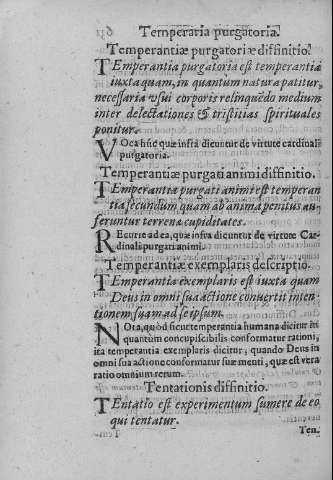 Temperaria purgatoria.
Temperantiæ purgatoriæ diffinitio.
TEmperantia purgatoria est temperantia
iuxta quam, in quantum natura patitur,
necessaria vsui corporis relinquẽdo medium
inter delectationes & tristitias spirituales
ponitur.
VOca hũc quæ infra dicuntur de virtute cardinali
purgatoria.
Temperantiæ purgati animi diffinitio.
TEmperantia purgati animi est temperan
tia secundum quam ab anima penitus au-
feruntur terrena cupiditates.
REcurre ad ea, quæ infra dicuntur de virtute Car-
dinali purgati animi.
Temperantiæ exemplaris descriptio.
TEmperantia exemplaris est iuxta quam
Deus in omni sua actione conuertit inten-
tionem suam ad se ipsum.
NOta, quòd sicut temperantia humana dicitur in
quantùm concupiscibilis conformatur rationi,
ita temperantia exemplaris dicitur, quando Deus in
omni sua actione conformatur suæ menti, quæ est vera
ratio omnium rerum.
Tentationis diffinitio.
TEntatio est experimentum sumere de eo
qui tentatur.
Ten.